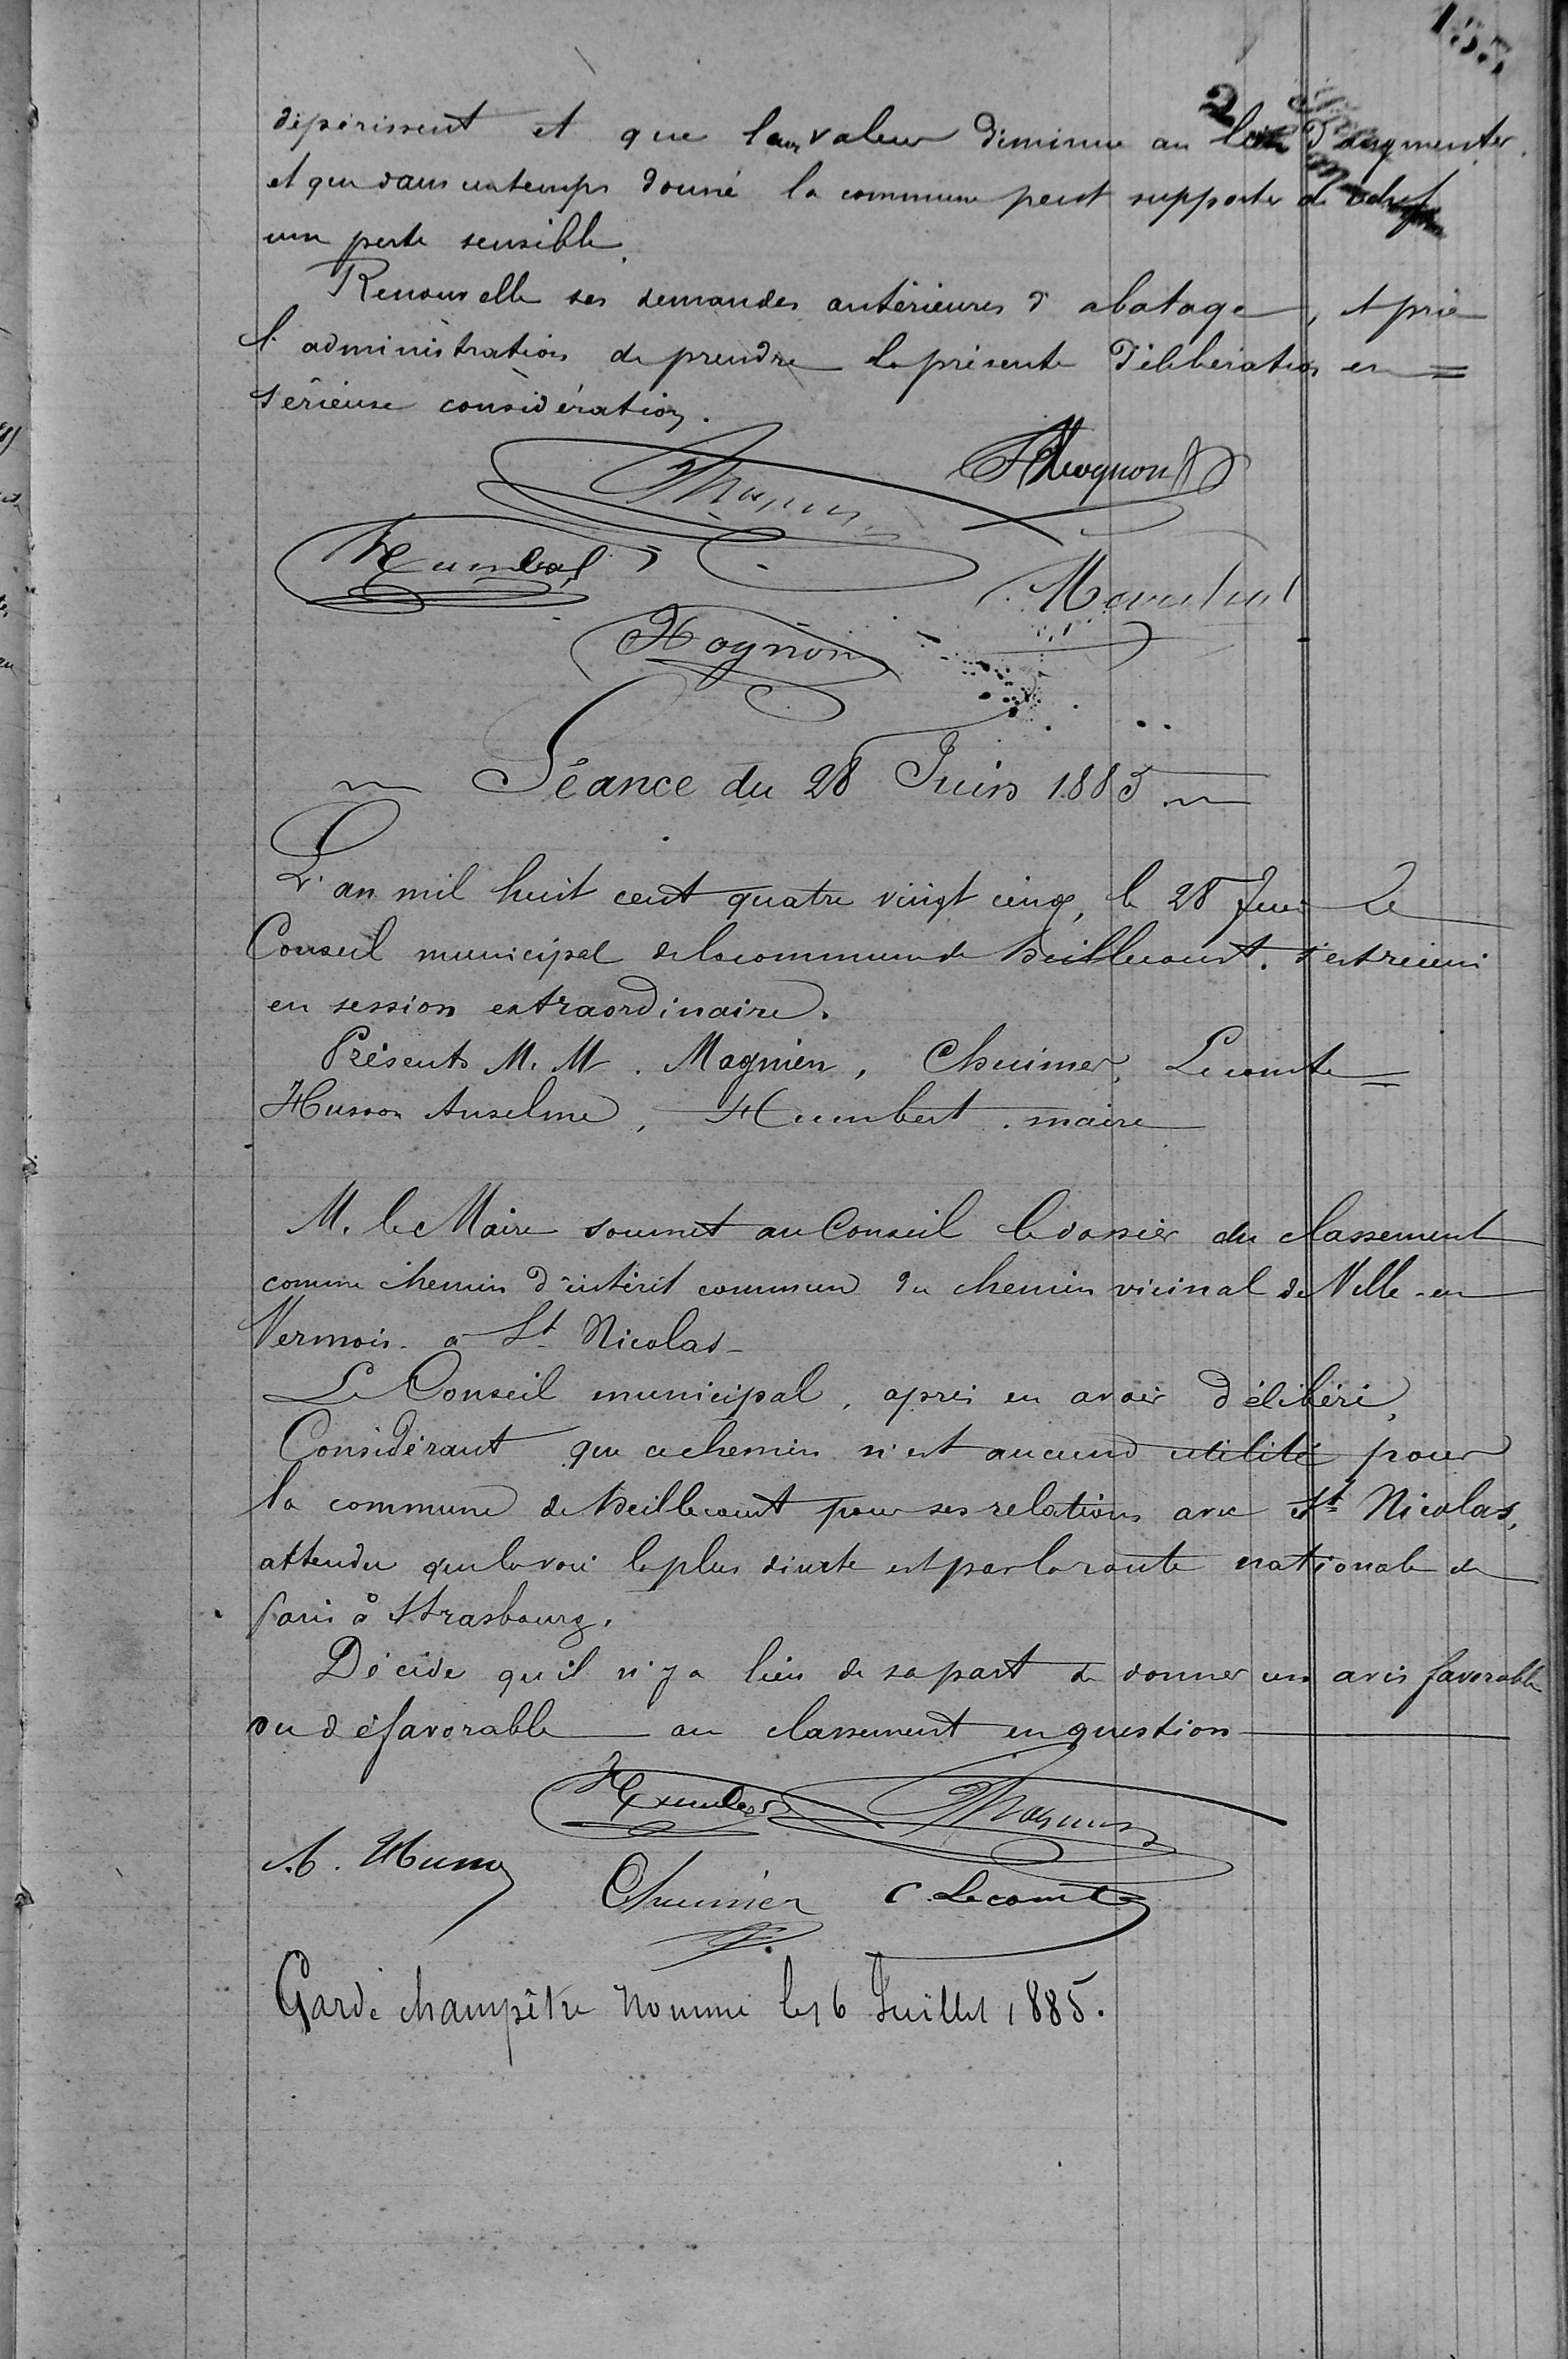 155
2
dépérissent et que leur valeur diminue au lieu d'augmenter.
et que dans un temps donné la commune peut supporter de ce chef
une perte sensible.
Renouvelle ses demandes antérieures d'abatage, et prie
l'administration de prendre la présente délibération en =
sérieuse considération.
Humbert
Hognon
Séance du 28 Juin 1885.
L'an mil huit cent quatre vingt cinq, le 28 Juin Le
Conseil municipal de la commune de Heillecourt. s'est réuni
en session extraordinaire.
Présents M. M. Magnien, Chuimer, Lecomte =
Husson Anselme, Humbert. maire
M. le Maire soumet au Conseil le dossier du classement
comme chemin d'intérêt commun du chemin vicinal de Ville-en
Vermois à St Nicolas-
Le Conseil municipal, après en avoir délibéré,
Considérant que ce chemin n'est aucune utilité pour
la commune de Heillecourt pour ses relations avec St Nicolas,
attendu que la voie la plus directe est par la route nationale de
Paris à Strasbourg.
Décide qu'il n'y a lieu de sa part de donner un avis favorable
ou défavorable au classement en question
Humbert Magnien
A. Husson Chuimer C. Lecomte
Garde champêtre nommé le 16 Juillet 1885.